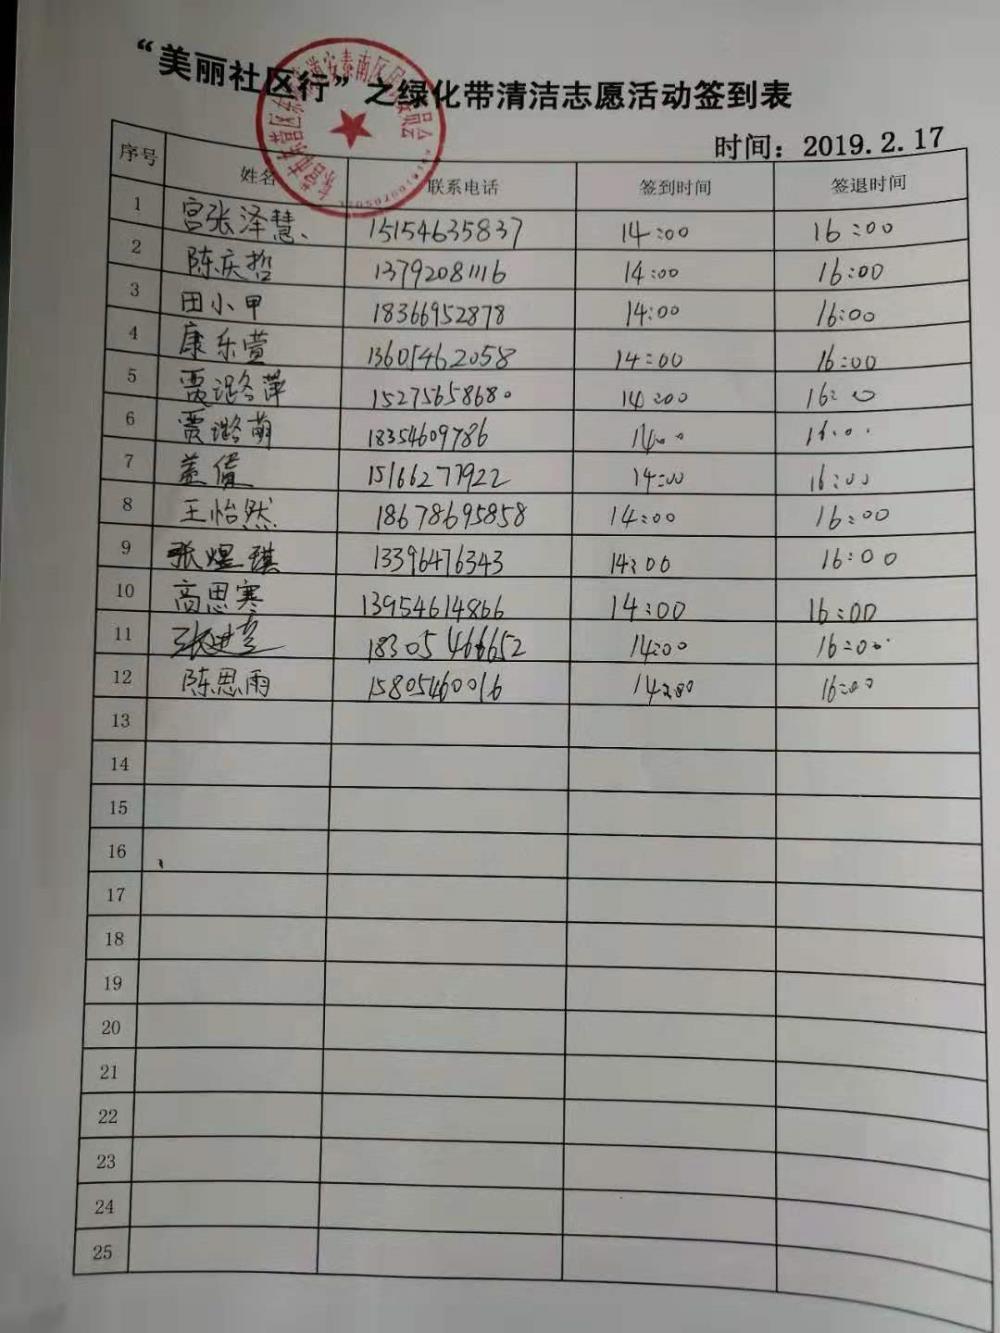 “美丽社区行”之绿化带清洁志愿活动签到表
时间：2019.2.17
序号 姓名 联系电话 签到时间 签退时间
1 宫张泽慧 15154635837 14:00 16:00
2 陈庆哲 13792081116 14:00 16:00
3 田小甲 18366952878 14:00 16:00
4 康乐萱 13605462058 14:00 16:00
5 贾潞萍 15275658680 14:00 16:00
6 贾潞萌 18354609786 14:00 16:00
7 15166277922 14:00 16:00
8 王怡然 18678695858 14:00 16:00
9 张煜琪 13396476343 14:00 16:00
10 高思寒 13954614866 14:00 16:00
11 18305466652 14:00 16:00
12 陈思雨 15805460016 14:00 16:00
13
14
15
16
17
18
19
20
21
22
23
24
25